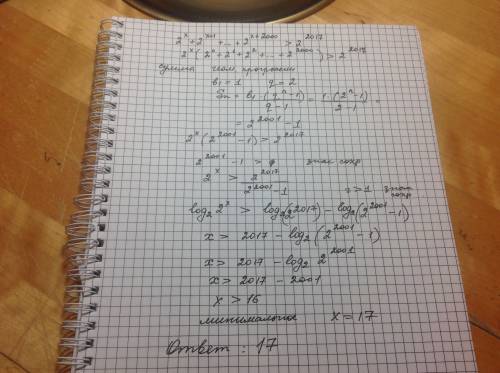 2^x + 2^(x+1) + ... + 2^(x+2000) > 2^2017
2^x (2^0 + 2^1 + 2^2 + ... + 2^2000) > 2^2017
сумма геом. прогрессии
b₁ = 1 q = 2
Sn = b₁ · (q^n - 1) / (q - 1) = 1 · (2^n - 1) / (2 - 1) =
= 2^2001 - 1
2^x (2^2001 - 1) > 2^2017
2^2001 - 1 > 0 знак сохр
2^x > 2^2017 / (2^2001 - 1)
2 > 1 знак сохр
log₂ 2^x > log₂(2^2017) - log₂(2^2001 - 1)
x > 2017 - log₂(2^2001 - 1)
x > 2017 - log₂ 2^2001
x > 2017 - 2001
x > 16
минимальное x = 17
Ответ: 17